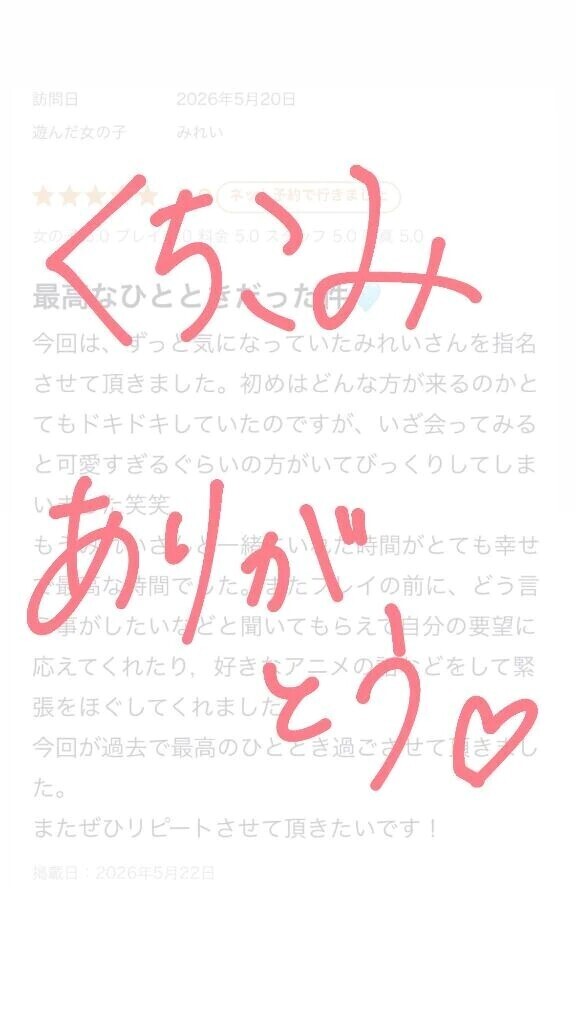 訪問日 2026年5月20日
遊んだ女の子 みれい
ネット予約で行きました
料金 5.0 5.0 5.0
最高なひとときだった件
今回は、ずっと気になっていたみれいさんを指名
させて頂きました。初めはどんな方が来るのかと
てもドキドキしていたのですが、いざ会ってみる
と可愛すぎるぐらいの方がいてびっくりしてしま
いました笑笑
もうみれいさんと一緒にいれた時間がとても幸せ
で最高な時間でした。またプレイの前に、どう言
事がしたいなどと聞いてもらえて自分の要望に
応えてくれたり，好きなアニメの話などをして緊
張をほぐしてくれました
今回が過去で最高のひととき過ごさせて頂きまし
た。
またぜひリピートさせて頂きたいです！
掲載日：2026年5月22日
くちこみ
ありが
とう♡